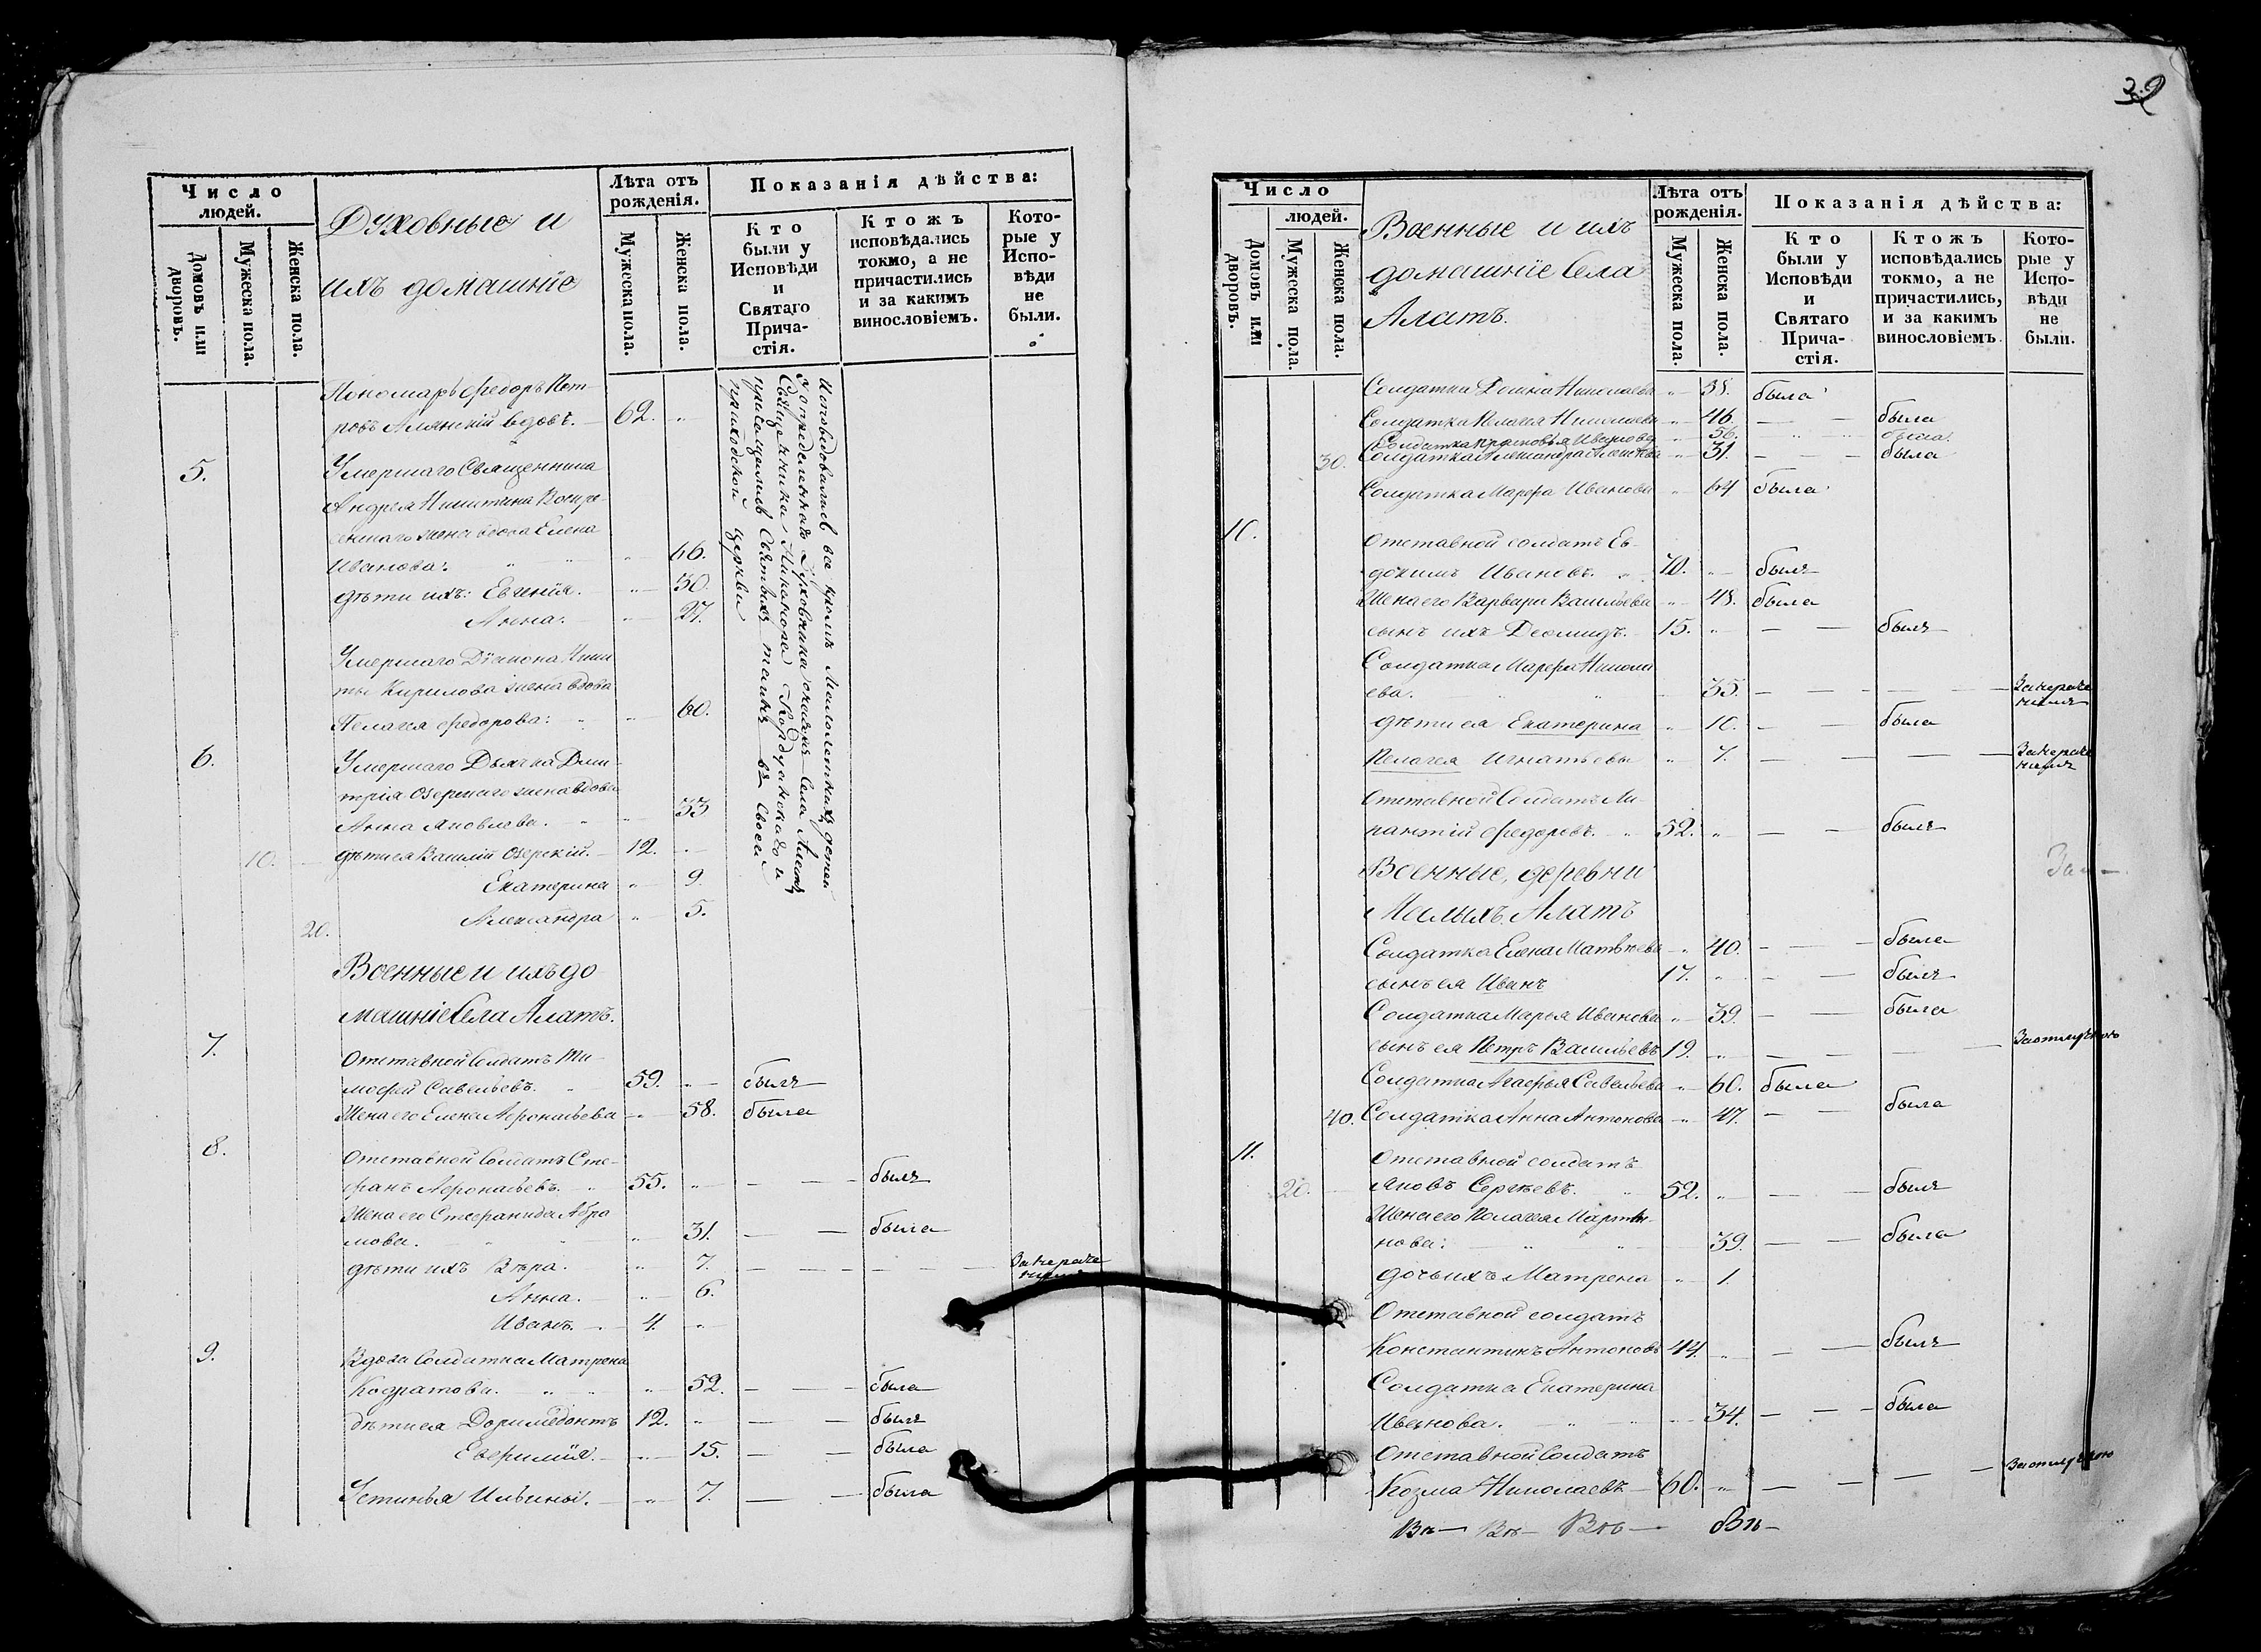 Число людей.
Домовъ или дворовъ.
Мужеска пола.
Женска пола.
Духовные и
ихъ домашніе
Лѣта отъ рожденія.
Мужеска пола.
Женска пола.
Показанія дѣйства:
Кто были у Исповѣди и Святаго Прича- стія.
Ктожъ исповѣдались токмо, а не причастились и за какимъ винословіемъ.
Кото- рые у Испо- вѣди не были.
Пономарь Федоръ Пет-
ровъ Алянскій вдовъ. 62.
5. Умершаго Священника
Андрея Никитина
жена вдова Елена
Иванова: 66.
дѣти ихъ: Евгенія. 30.
Анна. 27.
Умершаго Діакона Ники
ты Кирилова жена вдова
Пелагея Федорова: 60.
6. Умершаго Дьячка Дми-
трія Озерскаго жена вдова
Анна Яковлева. 33
10. дѣти ея Василій Озерскій. 12.
Екатерина 9.
Александра 5.
20.
Исповедовались все кроме малолетнихъ детей
у определеннаго Духовника онаго Села Алатъ
Священника
приобщались Святыхъ таинъ въ своей
приходской церкви
Военные и ихъ до
машніе Села Алатъ.
7. Отставной Солдатъ Ти-
мофей Савельевъ. 59. былъ
Жена его Елена Афонасьева 58. была
8. Отставной Солдатъ Сте-
фанъ Афонасьевъ. 55. былъ
Жена его Стефанида Абра
мова. 31. была
дѣти ихъ Вѣра. 7. За нераче
ніемъ
Анна. 6.
Иванъ. 4.
9. Вдова Солдатка Матрена
Кодратова. 52. была
дѣти ея Доримедонтъ 12. былъ
Евфимія. 15. была
Устинья Ильины. 7. была
39
Число людей.
Домовъ или дворовъ.
Мужеска пола.
Женска пола.
Военные и ихъ
домашніе Села
Алатъ.
Лѣта отъ рожденія.
Мужеска пола.
Женска пола.
Показанія дѣйства:
Кто были у Исповѣди и Святаго Прича- стія.
Ктожъ исповѣдались токмо, а не причастились, и за какимъ винословіемъ
Кото- рые у Испо- вѣди не были.
Солдатка Домна Николаева 38. была
Солдатка Пелагея 46. была
Солдатка Прасковья Иванова 56. была.
30. Солдатка Александра 31. была
Солдатка Марфа Иванова 64 была
10. Отставной солдатъ Ев-
докимъ Ивановъ. 70. былъ
Жена его Варвара Васильева 48. была
сынъ ихъ Деомидъ. 15. былъ
Солдатка Марфа Никола
ева. 35. За нераче
ніемъ
дѣти ея Екатерина 10. была
Пелагея Игнатьевы 7. За нераче
ніемъ
Отставной Солдатъ Ли-
пантій Федоровъ. 52. былъ
Военные, деревни
Малыхъ Алатъ
Солдатка Елена Матвѣева 40. была
сынъ ея Иванъ 17. былъ
Солдатка Марья Иванова 39. была
сынъ ея Петръ Васильевъ 19. За отлучкою
Солдатка Агафья Савельева 60. была
40. Солдатка Анна Антонова 47. была
11. Отставной солдатъ
20. Яковъ Сергѣевъ. 52. былъ
Жена его Пелагея Марты-
нова: 39. была
дочь ихъ Матрена 1.
Отставной солдатъ
Константинъ Антоновъ 44. былъ
Солдатка Екатерина
Иванова. 34. была
Отставной Солдатъ
Козма Николаевъ 60. За отлучкою